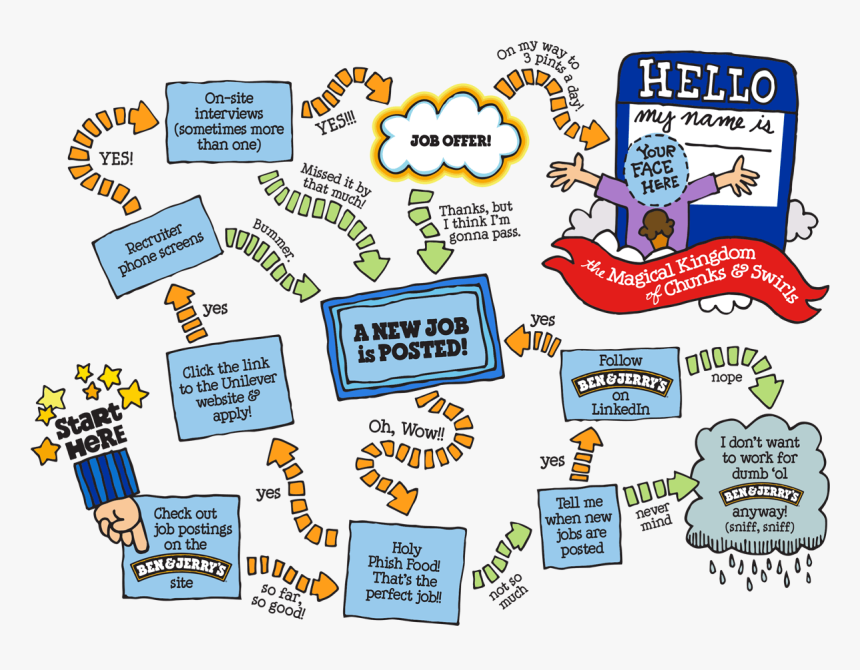 Start
HeRe
Check out
job postings
on the
BEN & JERRY'S
site
so far,
so good!
Holy
Phish Food!
That's the
perfect job!!
yes
Click the link
to the Unilever
website &
apply!
yes
Recruiter
phone screens
YES!
On-site
interviews
(sometimes more
than one)
YES!!!
JOB OFFER!
On my way to
3 pints a day!
HELLO
my name is
YOUR
FACE
HERE
the Magical Kingdom
of Chunks & Swirls
Bummer.
Missed it by
that much!
Thanks, but
I think I'm
gonna pass.
A NEW JOB
is POSTED!
Oh, Wow!!
not so
much
Tell me
when new
jobs are
posted
yes
never
mind
Follow
BEN & JERRY'S
on
LinkedIn
yes
nope
I don't want
to work for
dumb 'ol
BEN & JERRY'S
anyway!
(sniff, sniff)